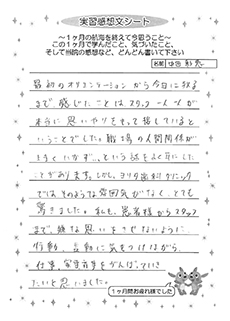 実習感想文シート
～1ヶ月の航海を終えて今思うこと～
この1ヶ月で学んだこと、気づいたこと、
そして当院の感想など、どんどん書いて下さい
名前
最初のオリエンテーションから今日に致る
まで感じたことはスタッフ一人一人が
本当に思いやりをもって接しているという
いうことでした。職場の人間関係が
うまくいかず…という話をよく耳にした
ことがあります。しかし、ヨリタ歯科クリニック
ではそのような雰囲気がなく、とても
驚きました。私も、患者様からスタッフ
まで嫌な思いをさせないように
行動、言動に気をつけながら
仕事、家事育児をがんばっていき
たいと思いました。
1ヶ月間お疲れ様でした